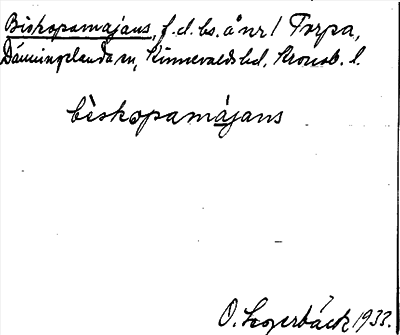 Biskopamajans, f.d. bs. å nr 1 Torpa,
Dänningelanda sn, Kinnevalds hd. Kronob. l.
bi̇̀skopamájans
O. Segerbäck 1933.